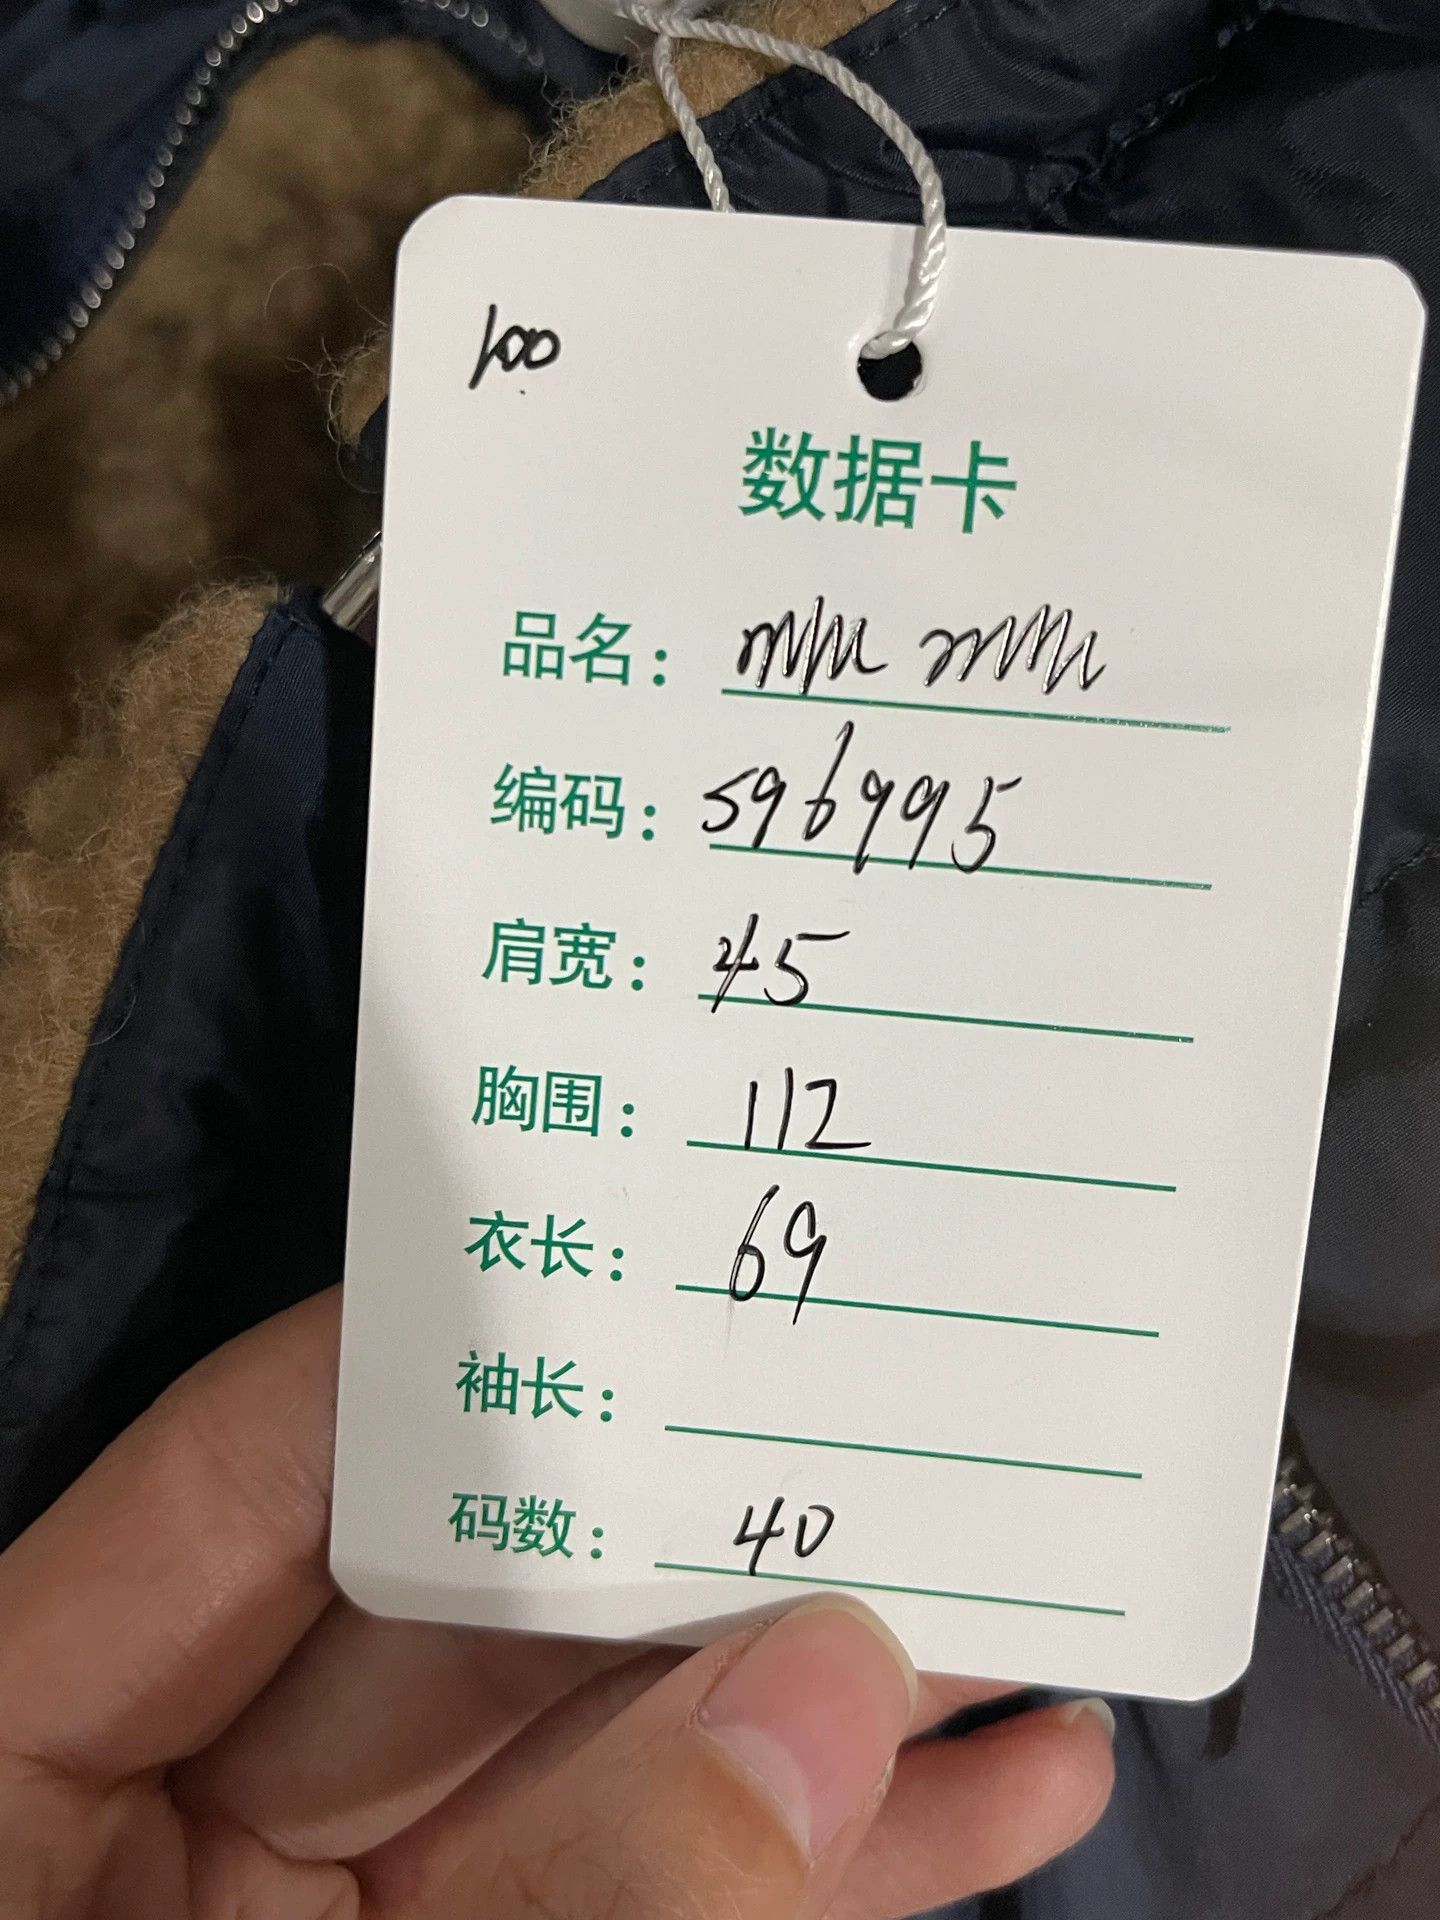 100
数据卡
品名: miu miu
编码: 596995
肩宽: 45
胸围: 112
衣长: 69
袖长:
码数: 40